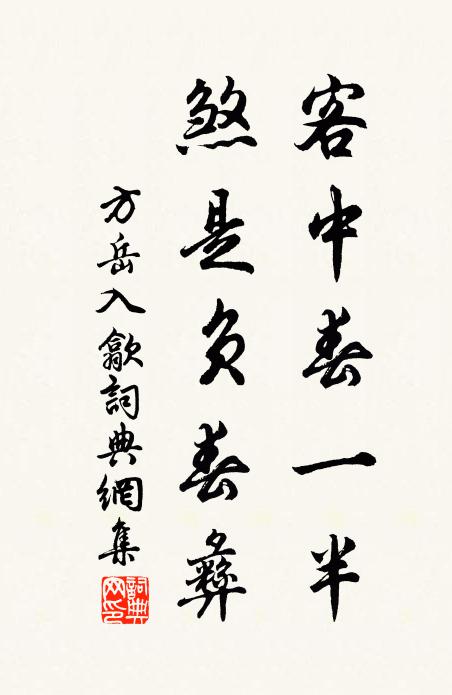 客中春一半
煞是負春彝
方岳入歙詞典網集
詞典網印